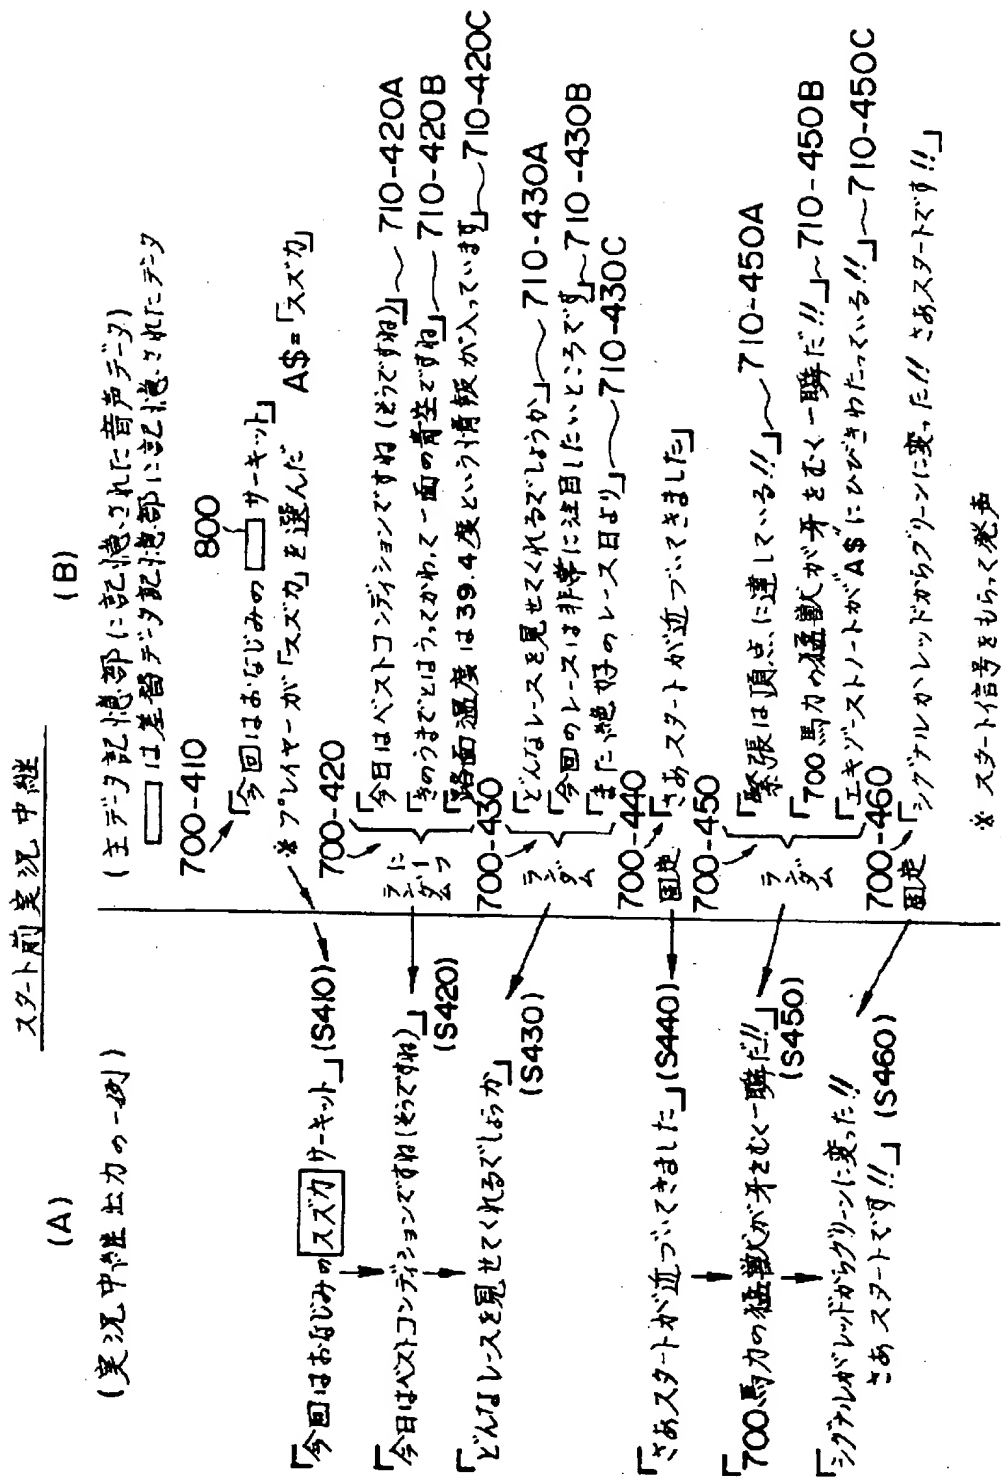 スタート前実況中継
(A)
(実況中継出力の一例)
「今回はおなじみのスズカサーキット」(S410)
「今日はベストコンディションですね(そうですね)」
(S420)
「どんなレースを見せてくれるでしょうか」
(S430)
「さあスタートが近づいてきました」(S440)
「700馬力の猛獣が牙をむく一瞬だ!!」
(S450)
「シグナルがレッドからグリーンに変った!!
さあスタートです!!」(S460)
(B)
(主データ記憶部に記憶された音声データ)
は差替データ記憶部に記憶されたデータ
700-410
800
「今回はおなじみの サーキット」
※プレイヤーが「スズカ」を選んだ A$=「スズカ」
700-420
ランダムに1つ
「今日はベストコンディションですね(そうですね)」~710-420A
「きのうまでとはうってかわって一面の青空ですね」~710-420B
「路面温度は39.4度という情報が入っています」~710-420C
700-430
ランダム
「どんなレースを見せてくれるでしょうか」~710-430A
「今回のレースは非常に注目したいところです」~710-430B
「また絶好のレース日より」~710-430C
700-440
固定
「さあスタートが近づいてきました」
700-450
ランダム
「緊張は頂点に達している!!」~710-450A
「700馬力の猛獣が牙をむく一瞬だ!!」~710-450B
「エキゾーストノートが"A$"にひびきわたっている!!」~710-450C
700-460
固定
「シグナルがレッドからグリーンに変った!! さあスタートです!!」
※ スタート信号をもらって発声